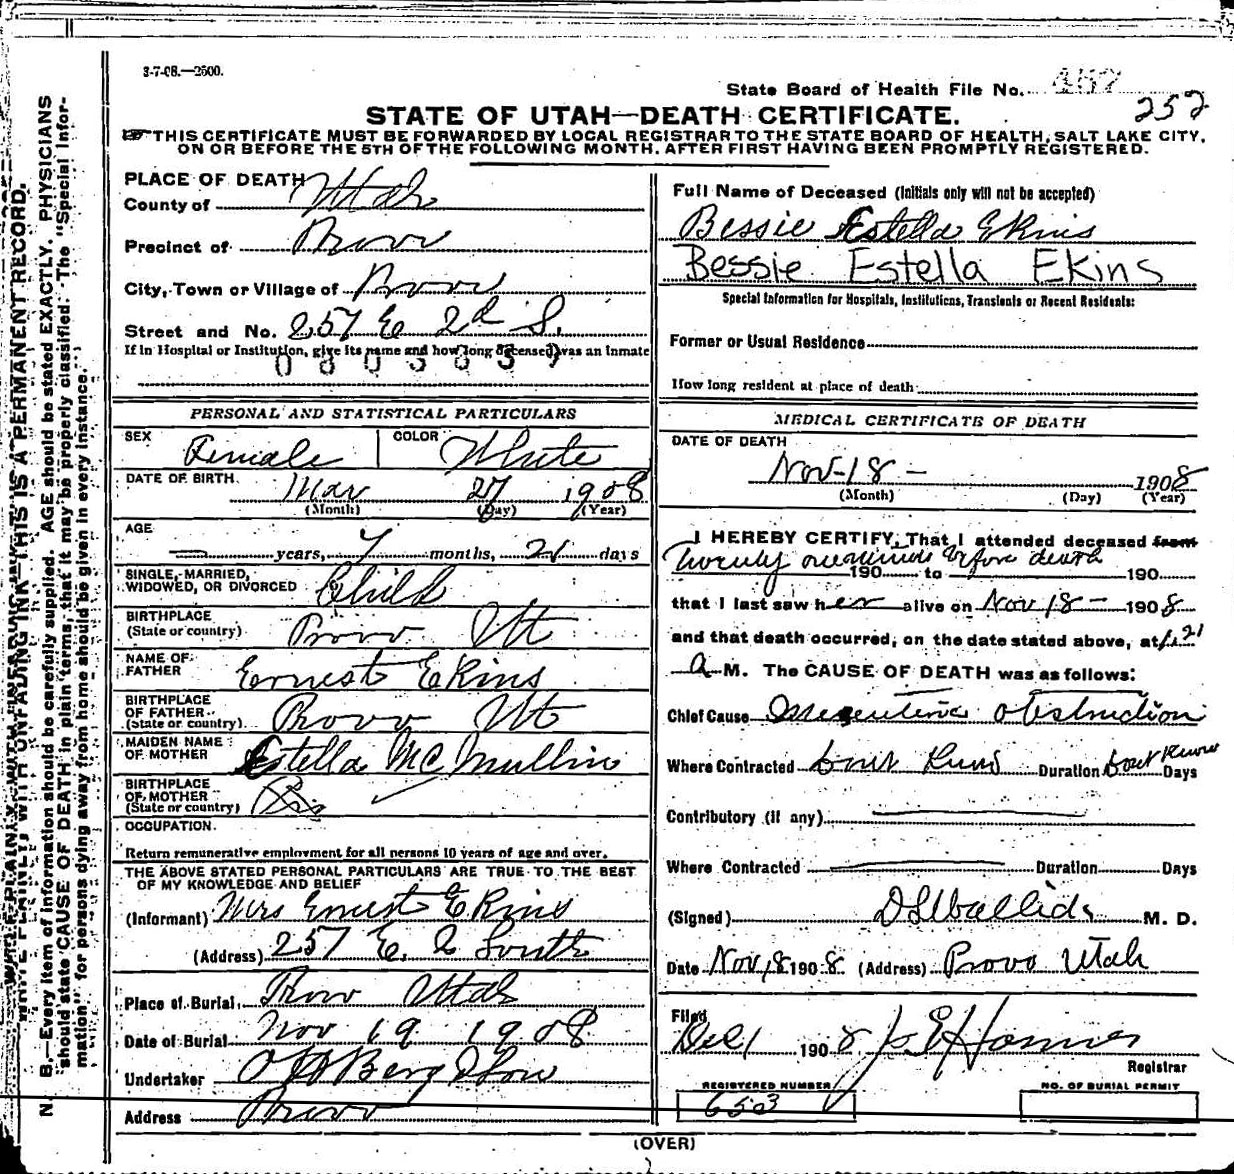 3-7-08.—2500.
State Board of Health File No. 457
252
STATE OF UTAH—DEATH CERTIFICATE.
THIS CERTIFICATE MUST BE FORWARDED BY LOCAL REGISTRAR TO THE STATE BOARD OF HEALTH, SALT LAKE CITY,
ON OR BEFORE THE 5TH OF THE FOLLOWING MONTH, AFTER FIRST HAVING BEEN PROMPTLY REGISTERED.
N. B.—Every item of information should be carefully supplied. AGE should be stated EXACTLY. PHYSICIANS
should state CAUSE OF DEATH in plain terms, that it may be properly classified. The "Special Infor-
mation" for persons dying away from home should be given in every instance.
THIS IS A PERMANENT RECORD.
PLACE OF DEATH
County of Utah
Precinct of Provo
City, Town or Village of Provo
Street and No. 257 E 2d S.
If in Hospital or Institution, give its name and how long deceased was an inmate
PERSONAL AND STATISTICAL PARTICULARS
SEX Female COLOR White
DATE OF BIRTH Mar 27 1908
(Month) (Day) (Year)
AGE
— years, 7 months, 21 days
SINGLE, MARRIED,
WIDOWED, OR DIVORCED Child
BIRTHPLACE
(State or country) Provo Ut
NAME OF
FATHER Ernest Ekins
BIRTHPLACE
OF FATHER
(State or country) Provo Ut
MAIDEN NAME
OF MOTHER Estella McMullin
BIRTHPLACE
OF MOTHER
(State or country)
OCCUPATION.
Return remunerative employment for all persons 10 years of age and over.
THE ABOVE STATED PERSONAL PARTICULARS ARE TRUE TO THE BEST
OF MY KNOWLEDGE AND BELIEF
(Informant) Mrs Ernest Ekins
(Address) 257 E. 2 South
Place of Burial Provo Utah
Date of Burial Nov 19 1908
Undertaker O H Berg & Son
Address Provo
Full Name of Deceased (Initials only will not be accepted)
Bessie Estella Ekins
Bessie Estella Ekins
Special Information for Hospitals, Institutions, Transients or Recent Residents:
Former or Usual Residence
How long resident at place of death:
MEDICAL CERTIFICATE OF DEATH
DATE OF DEATH
Nov-18- 1908
(Month) (Day) (Year)
I HEREBY CERTIFY, That I attended deceased from
Twenty minutes before death
190 to 190
that I last saw her alive on Nov 18- 1908
and that death occurred, on the date stated above, at 1.21
a M. The CAUSE OF DEATH was as follows:
Chief Cause obstruction
Where Contracted dont know Duration dont know Days
Contributory (if any)
Where Contracted Duration Days
(Signed) M. D.
Date Nov, 18 1908 (Address) Provo Utah
Filed
Dec 1 1908
Registrar
REGISTERED NUMBER
653
NO. OF BURIAL PERMIT
(OVER)